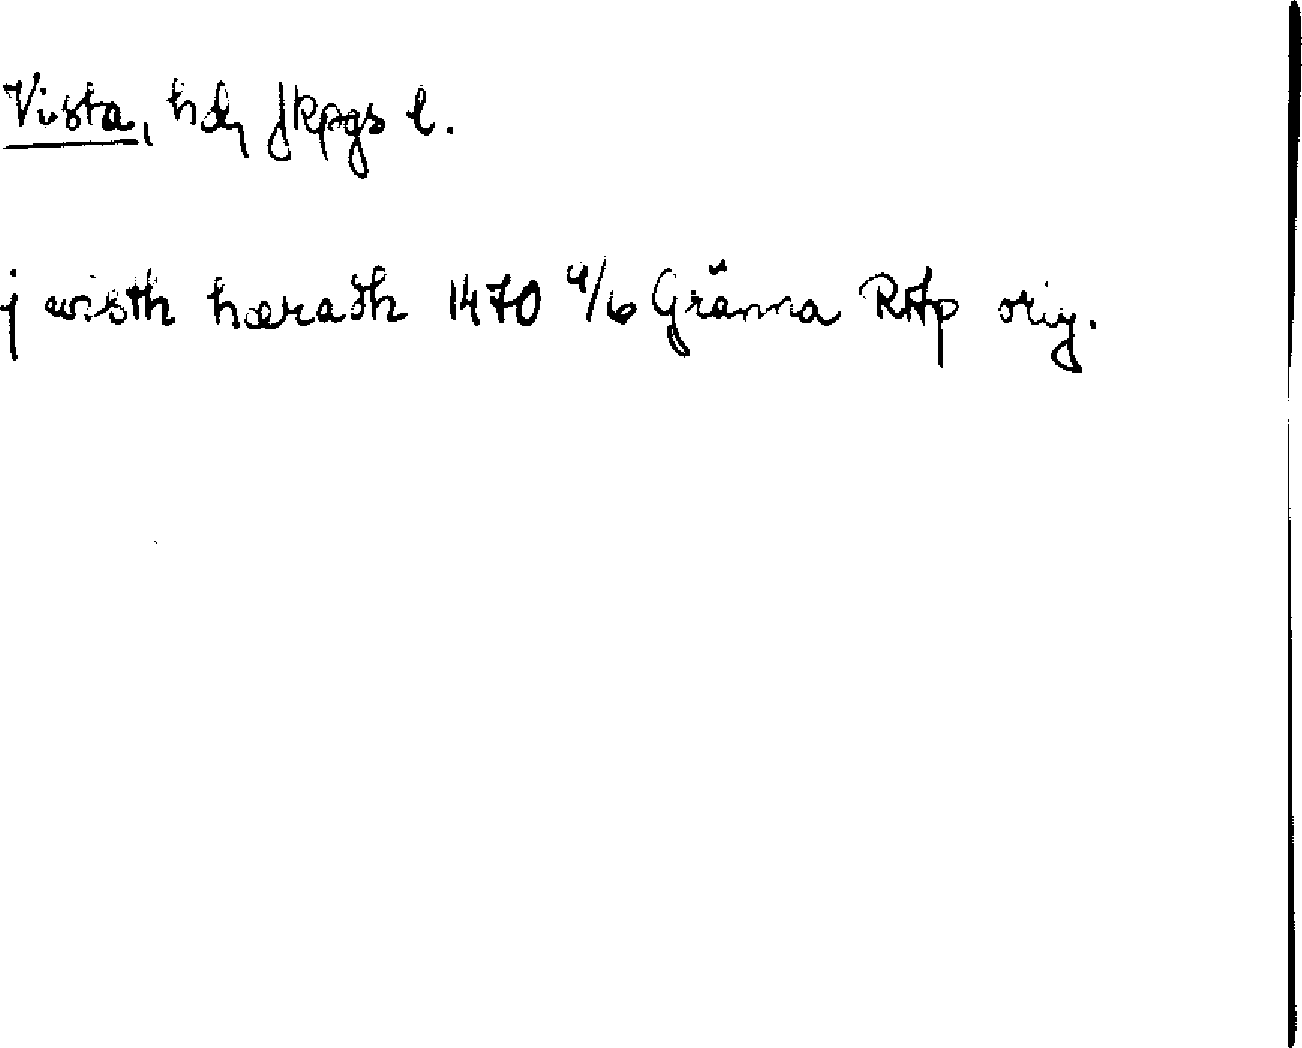 Vista, hd, Jkpgs l.
j wisth hærath 1470 4/6 Gränna RAp orig.